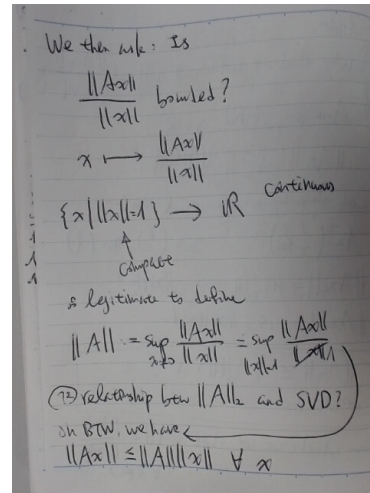 We then ask: Is
||Ax|| / ||x|| bounded?
x ⟼ ||Ax|| / ||x||
{x | ||x||=1} → ℝ continuous
↑
compact
so legitimate to define
||A|| := sup_{x≠0} ||Ax|| / ||x|| = sup_{||x||=1} ||Ax|| / ||x||
relationship btw ||A||₂ and SVD?
oh BTW, we have
||Ax|| ≤ ||A|| ||x|| ∀ x